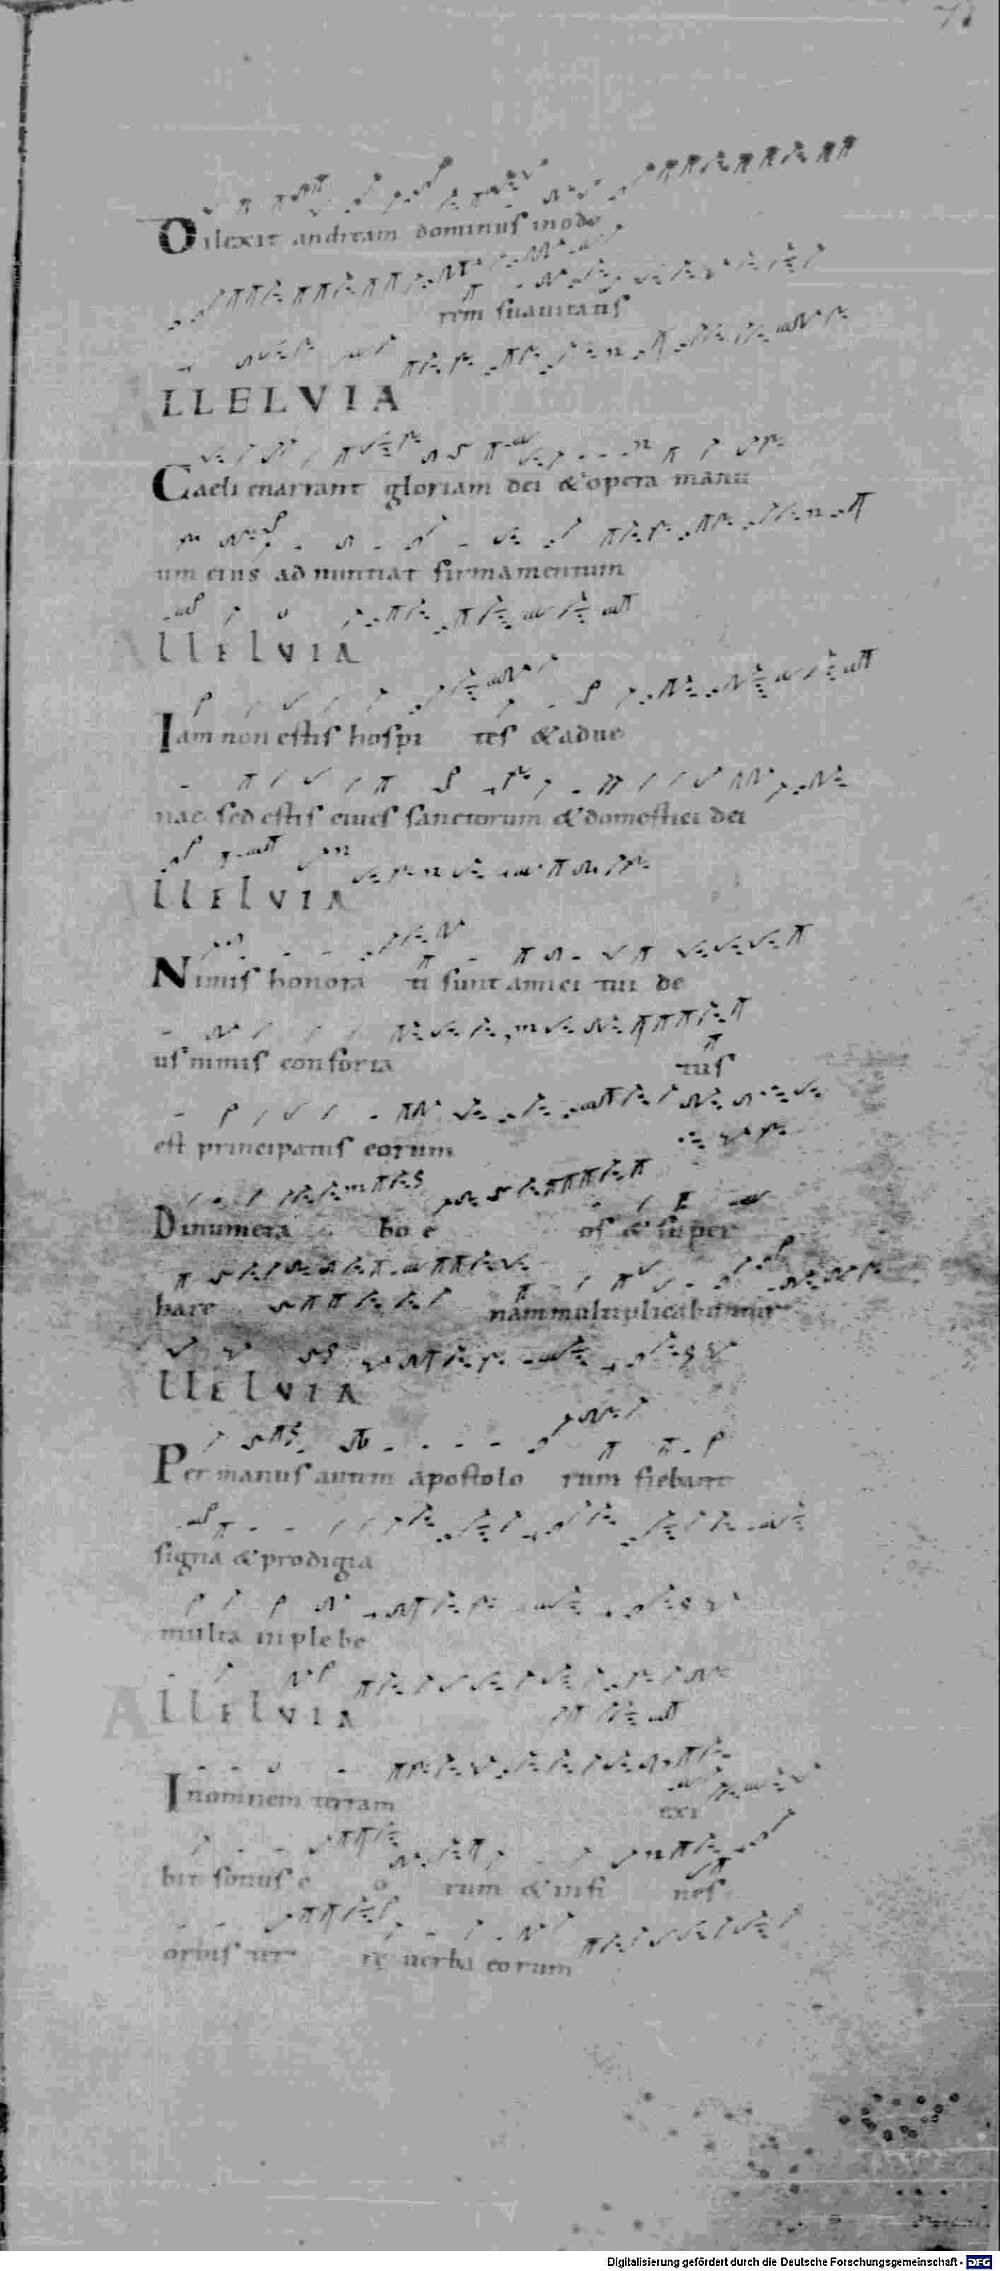 Dilexit andream dominus inodo
rem suauitatis
LLELVIA
Caeli enarrant gloriam dei & opera manu
um eius ad nuntiat firmamentum
llELVIA
Iam non estis hospi tes & adue
nae sed estis ciues sanctorum & domestici dei
llELVIA
Nimis honora ti sunt amici tui de
us nimis conforta tus
est principatus eorum
Dinumera bo e os & super
hare nam multiplicabuntur
llELVIA
Per manus autem apostolo rum fiebant
signa & prodigia
multa inplebe
AllELVIA
Inomnem terram exi
bit sonus e o rum & infi nes
orbis ter re uerba eorum
Digitalisierung gefördert durch die Deutsche Forschungsgemeinschaft - DFG